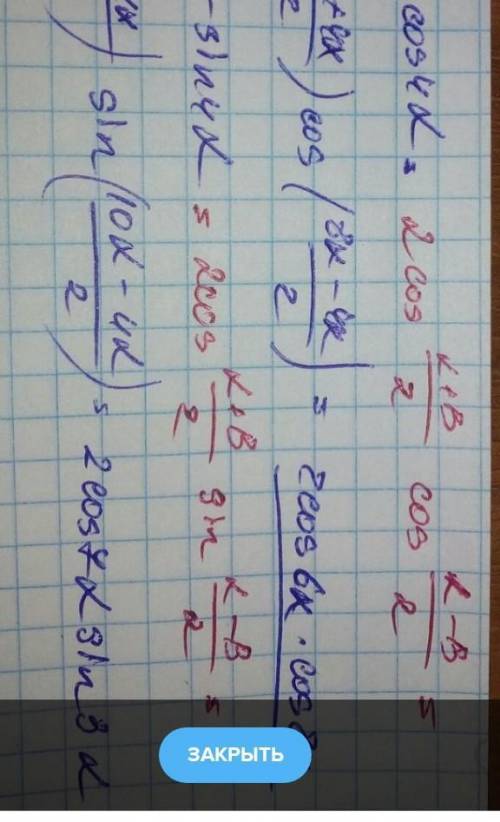 cos4α = 2cos (α+β)/2 cos (α-β)/2 =
+4α)/2) cos((8α-4α)/2) = 2cos6α·cos
-sin4α = 2cos (α+β)/2 sin (α-β)/2 =
sin((10α-4α)/2) = 2cos7α sin3α
ЗАКРЫТЬ